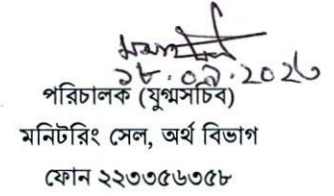 পরিচালক (যুগ্মসচিব)
মনিটরিং সেল, অর্থ বিভাগ
ফোন ২২৩৩৫৬৩৫৮